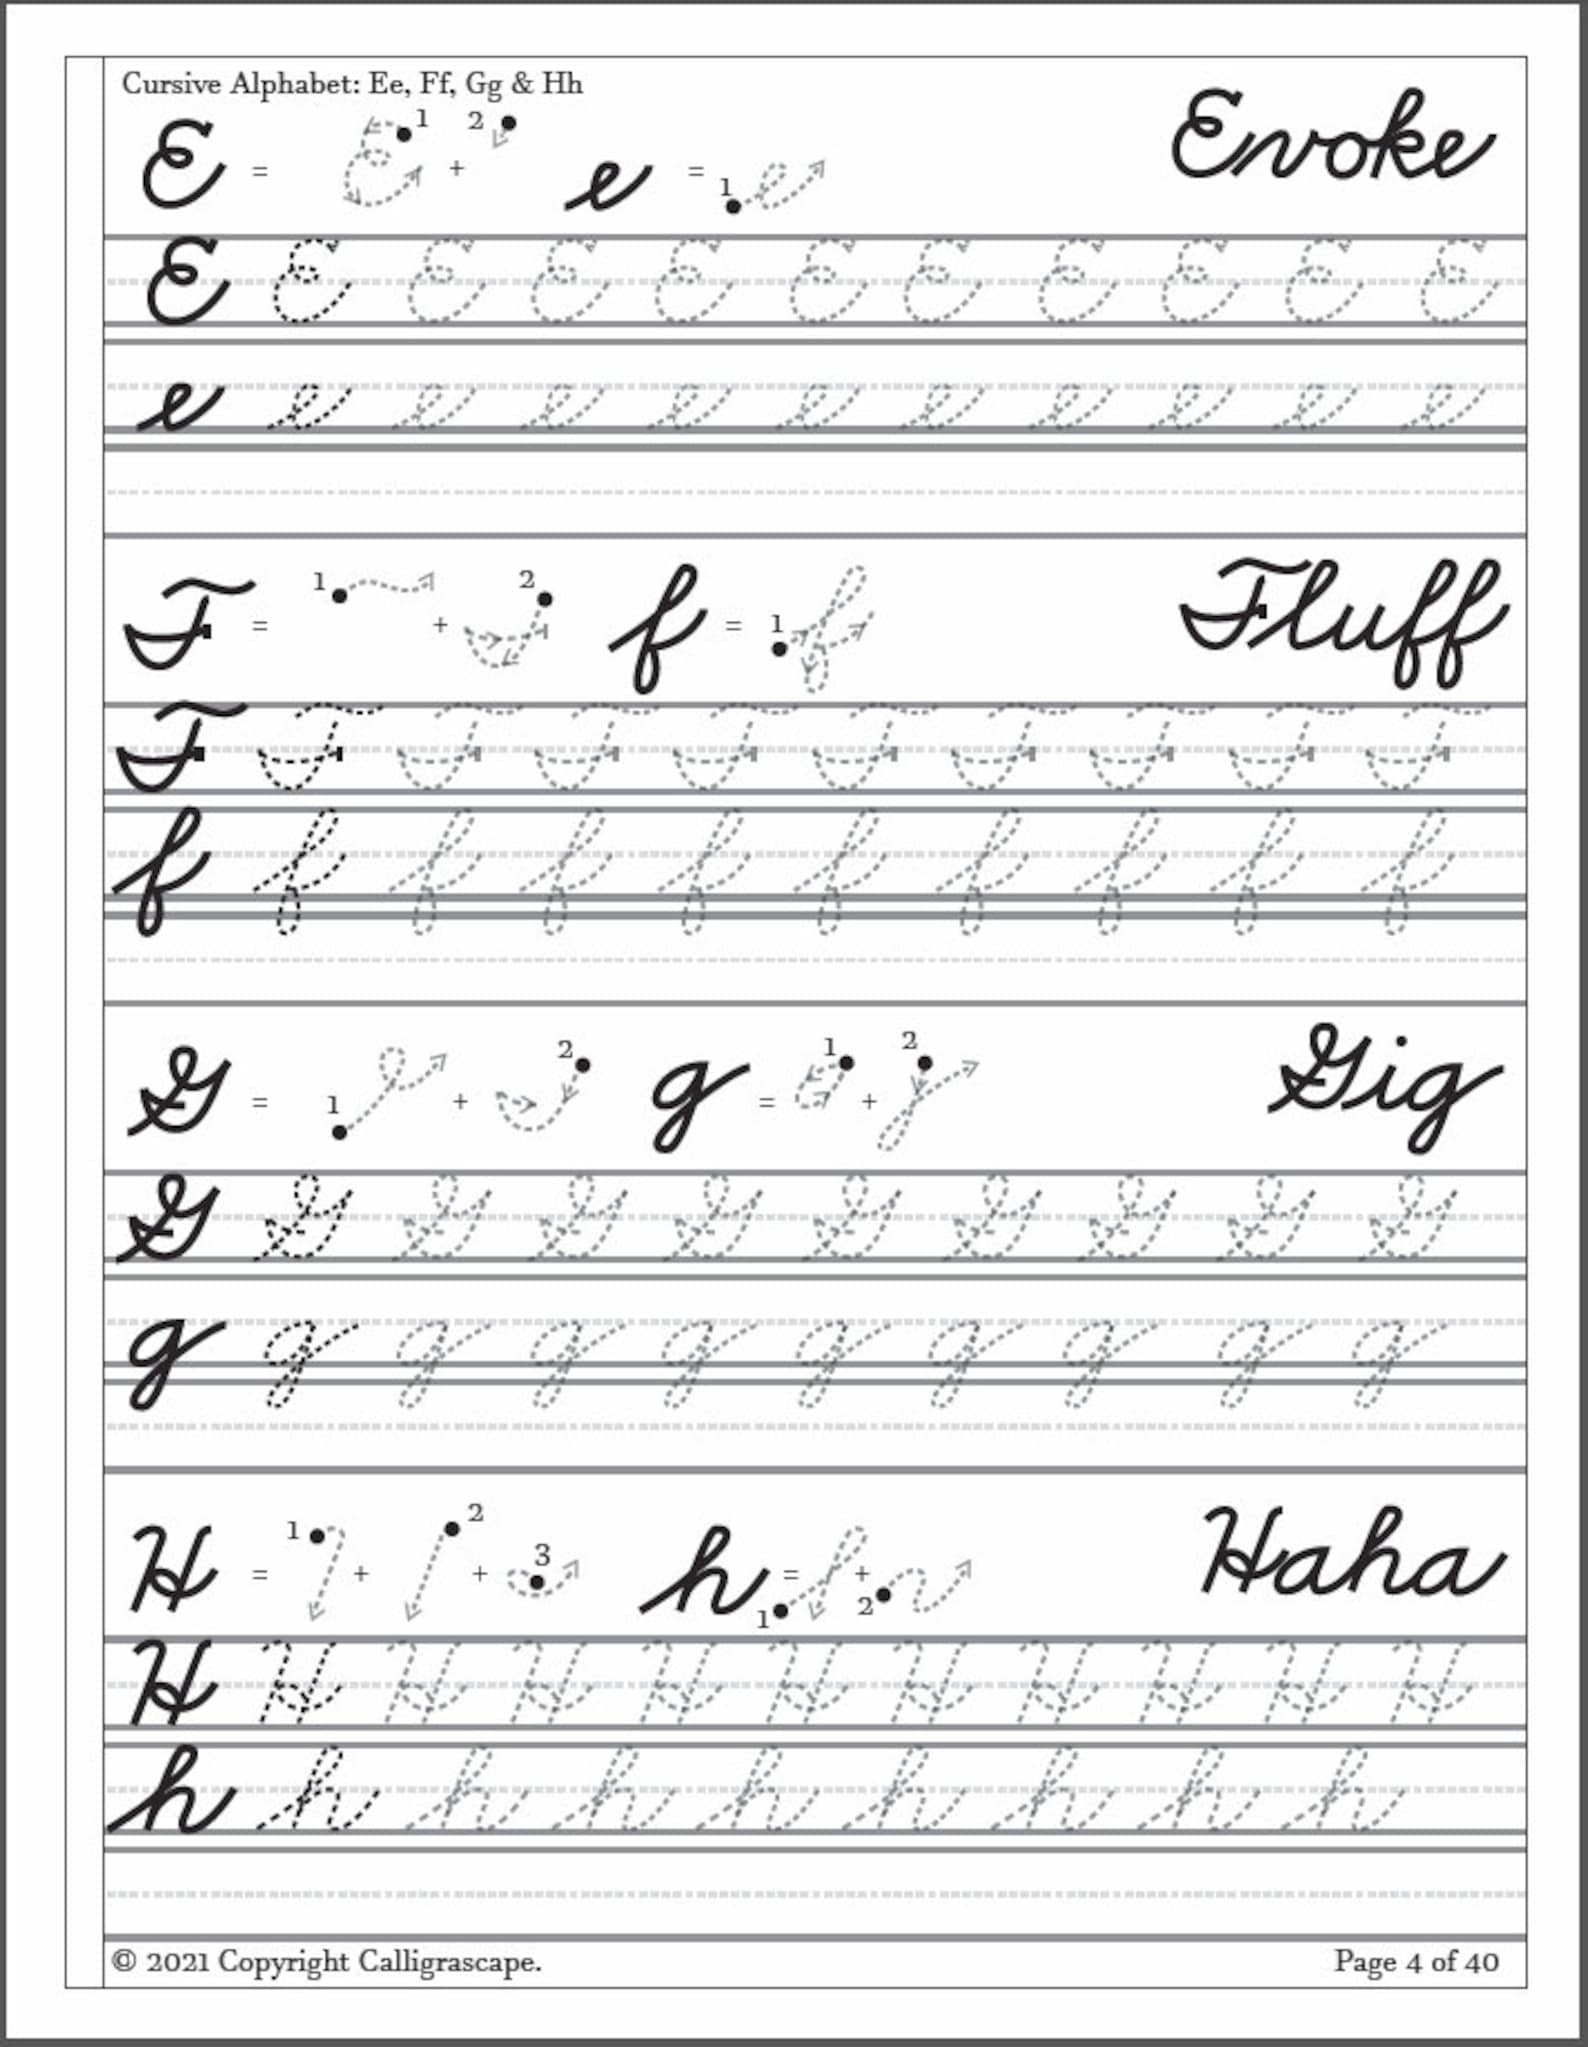 Cursive Alphabet: Ee, Ff, Gg & Hh
E = 1 + 2 e = 1 Evoke
E E E E E E E E E E E
e e e e e e e e e e e
F = 1 + 2 f = 1 Fluff
F F F F F F F F F F
f f f f f f f f f f
G = 1 + 2 g = 1 + 2 Gig
G G G G G G G G G G
g g g g g g g g g g
H = 1 + 2 + 3 h = 1 + 2 Haha
H H H H H H H H H H H
h h h h h h h h h
© 2021 Copyright Calligrascape. Page 4 of 40